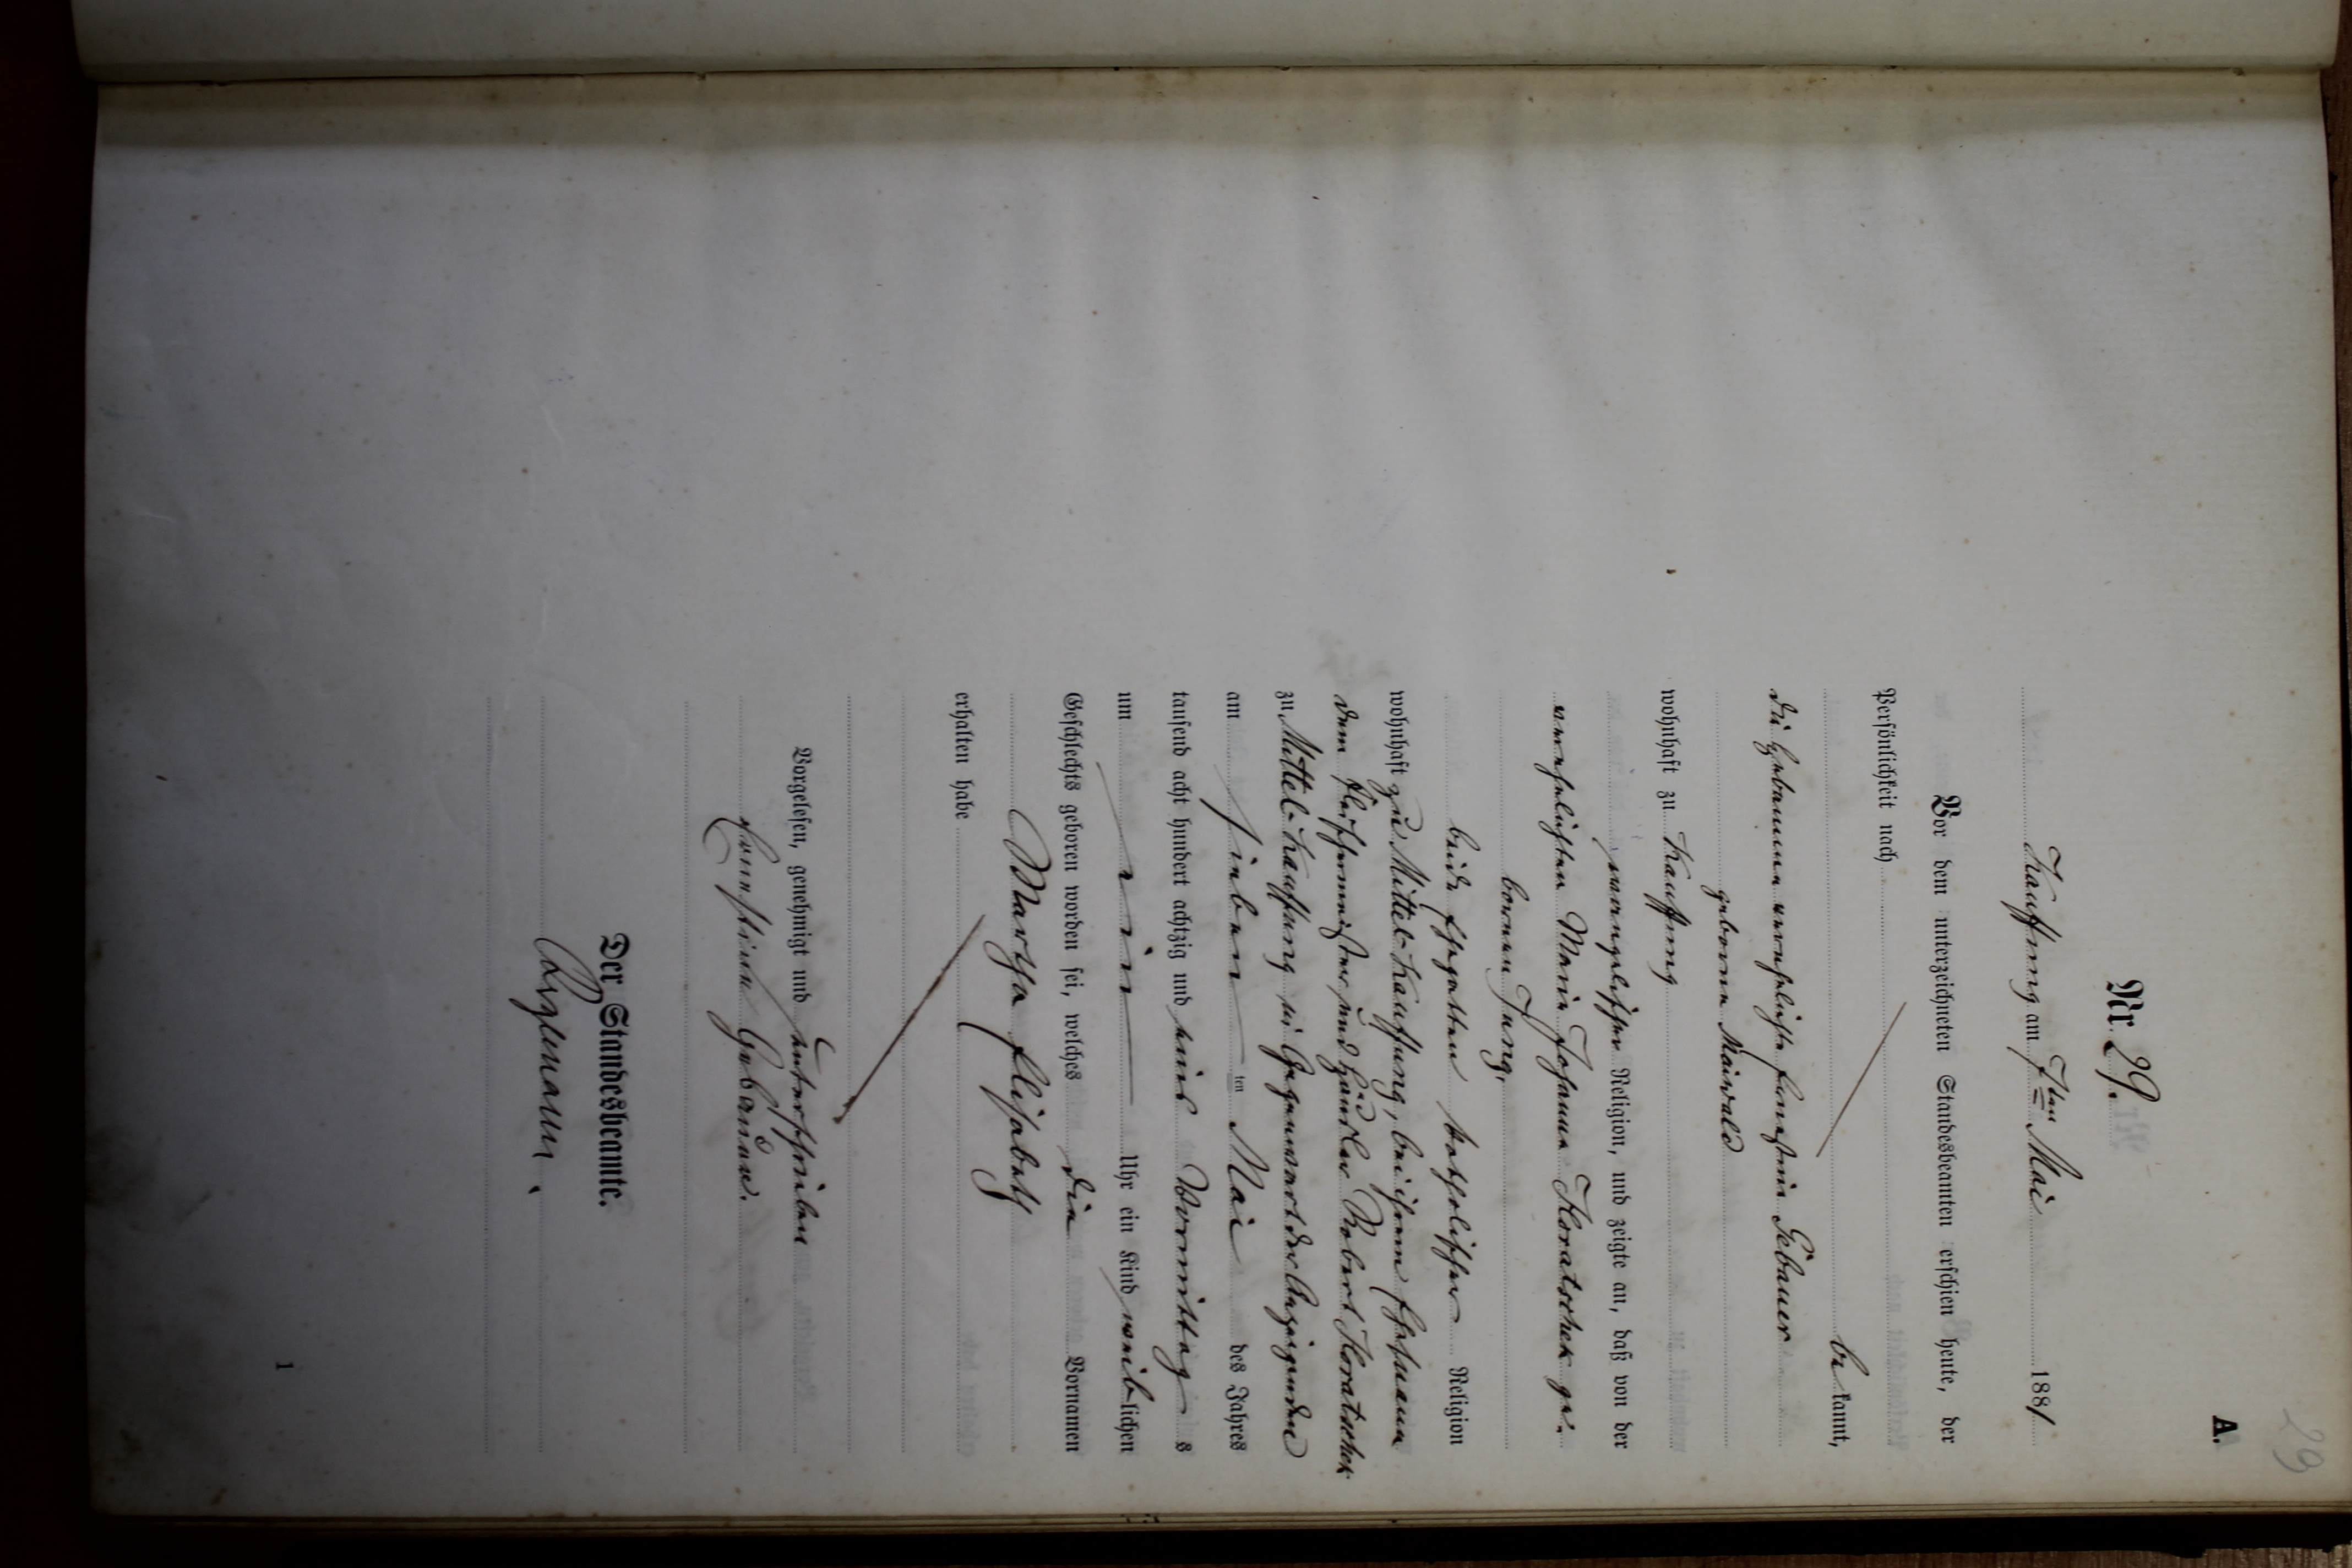 29
A.
Nr. 29.
Kauffung am 7ten Mai 1881
Vor dem unterzeichneten Standesbeamten erschien heute, der
Persönlichkeit nach
be kannt,
die Hebamme verehelichte Ernestine Gebauer
geborene Maiwald
wohnhaft zu Kauffung
evangelischer Religion, und zeigte an, daß von der
verehelichten Marie Johanna Horatschek ge-
borenen Jung,
beide Ehegatten katholischer Religion
wohnhaft zu Mittel-Kauffung, bei ihrem Ehemann
dem Fleischermeister und Häusler Robert Horatschek
zu Mittel-Kauffung in Gegenwart der Anzeigenden
am sieben ten Mai des Jahres
tausend acht hundert achtzig und eins Vormittag s
um ein Uhr ein Kind weib-lichen
Geschlechts geboren worden sei, welches die Vornamen
Martha Elisabeth
erhalten habe
Vorgelesen, genehmigt und unterschrieben
Ernestine Gebauer.
Der Standesbeamte.
Bergmann.
1